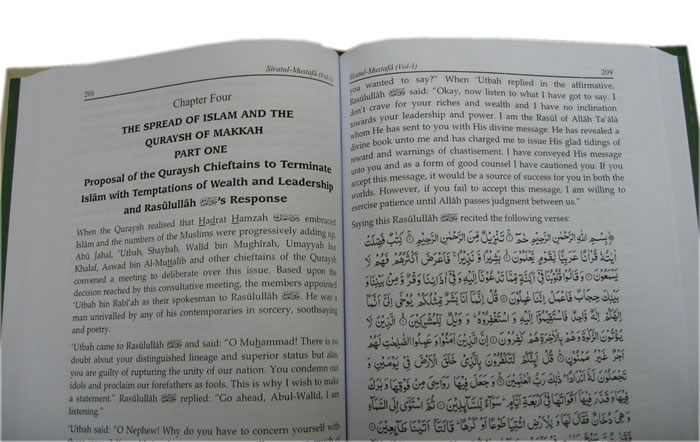 208
Sīratul-Mustafā (Vol-1)
Chapter Four
THE SPREAD OF ISLAM AND THE
QURAYSH OF MAKKAH
PART ONE
Proposal of the Quraysh Chieftains to Terminate
Islām with Temptations of Wealth and Leadership
and Rasūlullāh ﷺ's Response
When the Quraysh realised that Hadrat Hamzah embraced
Islām and the numbers of the Muslims were progressively adding up,
Abū Jahal, 'Utbah, Shaybah, Walīd bin Mughīrah, Umayyah bin
Khalaf, Aswad bin Al-Muttalib and other chieftains of the Quraysh
convened a meeting to deliberate over this issue. Based upon the
decision reached by this consultative meeting, the members appointed
'Utbah bin Rabī'ah as their spokesman to Rasūlullāh ﷺ. He was a
man unrivalled by any of his contemporaries in sorcery, soothsaying
and poetry.
'Utbah came to Rasūlullāh ﷺ and said: "O Muhammad! There is no
doubt about your distinguished lineage and superior status but alas,
you are guilty of rupturing the unity of our nation. You condemn our
idols and proclaim our forefathers as fools. This is why I wish to make
a statement." Rasūlullāh ﷺ replied: "Go ahead, Abul-Walīd, I am
listening."
'Utbah said: "O Nephew! Why do you have to concern yourself with
Sīratul-Mustafā (Vol-1)
209
you wanted to say?" When 'Utbah replied in the affirmative,
Rasūlullāh ﷺ said: "Okay, now listen to what I have got to say. I
don't crave for your riches and wealth and I have no inclination
towards your leadership and power. I am the Rasūl of Allāh Ta'ālā
whom He has sent to you with His divine message. He has revealed a
divine book unto me and has charged me to issue His glad tidings of
reward and warnings of chastisement. I have conveyed His message
unto you and as a form of good counsel I have cautioned you. If you
accept this message, it would be a source of success for you in both the
worlds. However, if you fail to accept this message, I am willing to
exercise patience until Allāh passes judgment between us."
Saying this Rasūlullāh ﷺ recited the following verses:
﴿بِسْمِ اللّٰهِ الرَّحْمٰنِ الرَّحِيْمِ حٰمٓ ۞ تَنْزِيْلٌ مِّنَ الرَّحْمٰنِ الرَّحِيْمِ ۞ كِتٰبٌ فُصِّلَتْ
اٰيٰتُهٗ قُرْاٰنًا عَرَبِيًّا لِّقَوْمٍ يَّعْلَمُوْنَ ۞ بَشِيْرًا وَّنَذِيْرًا فَاَعْرَضَ اَكْثَرُهُمْ فَهُمْ لَا
يَسْمَعُوْنَ ۞ وَقَالُوْا قُلُوْبُنَا فِيْٓ اَكِنَّةٍ مِّمَّا تَدْعُوْنَآ اِلَيْهِ وَفِيْٓ اٰذَانِنَا وَقْرٌ وَّمِنْۢ بَيْنِنَا وَ
بَيْنِكَ حِجَابٌ فَاعْمَلْ اِنَّنَا عٰمِلُوْنَ ۞ قُلْ اِنَّمَآ اَنَا بَشَرٌ مِّثْلُكُمْ يُوْحٰٓى اِلَيَّ اَنَّمَآ
اِلٰهُكُمْ اِلٰهٌ وَّاحِدٌ فَاسْتَقِيْمُوْٓا اِلَيْهِ وَاسْتَغْفِرُوْهُ ۚ وَوَيْلٌ لِّلْمُشْرِكِيْنَ ۞ الَّذِيْنَ لَا
يُؤْتُوْنَ الزَّكٰوةَ وَهُمْ بِالْاٰخِرَةِ هُمْ كٰفِرُوْنَ ۞ اِنَّ الَّذِيْنَ اٰمَنُوْا وَعَمِلُوا الصّٰلِحٰتِ لَهُمْ
اَجْرٌ غَيْرُ مَمْنُوْنٍ ۞ قُلْ اَئِنَّكُمْ لَتَكْفُرُوْنَ بِالَّذِيْ خَلَقَ الْاَرْضَ فِيْ يَوْمَيْنِ وَ
تَجْعَلُوْنَ لَهٗٓ اَنْدَادًا ۚ ذٰلِكَ رَبُّ الْعٰلَمِيْنَ ۞ وَجَعَلَ فِيْهَا رَوَاسِيَ مِنْ فَوْقِهَا وَبٰرَكَ
فِيْهَا وَقَدَّرَ فِيْهَآ اَقْوَاتَهَا فِيْٓ اَرْبَعَةِ اَيَّامٍ ۚ سَوَآءً لِّلسَّآئِلِيْنَ ۞ ثُمَّ اسْتَوٰٓى اِلَى السَّمَآءِ
وَهِيَ دُخَانٌ فَقَالَ لَهَا وَلِلْاَرْضِ ائْتِيَا طَوْعًا اَوْ كَرْهًا ۚ قَالَتَآ اَتَيْنَا طَآئِعِيْنَ